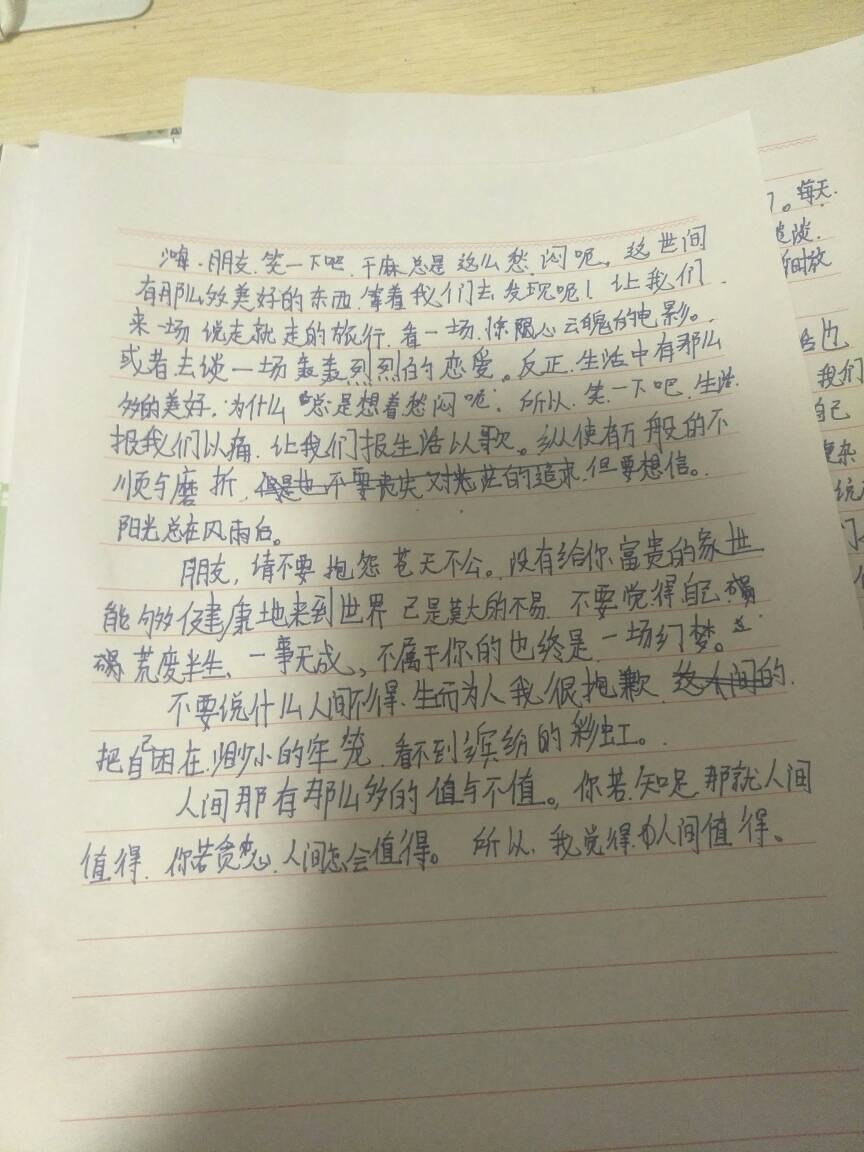 嗨.朋友.笑一下吧.干麻总是这么愁闷呢。这世间
有那么多美好的东西.等着我们去发现呢!让我们.
来一场说走就走的旅行.看一场.惊心动魄的电影。
或者去谈一场轰轰烈烈的恋爱。反正.生活中有那么
多的美好.为什么总是想着愁闷呢.所以.笑一下吧.生活.
报我们以痛.让我们报生活以歌。纵使有万般的不
顺与磨折.但是也不要丧失对光茫的追求.但要想信。
阳光总在风雨后。
朋友,请不要抱怨苍天不公。没有给你富贵的家世
能够健康地来到世界已是莫大的不易.不要觉得自己.
荒度半生、一事无成、不属于你的也终是一场幻梦。
不要说什么人间不值得.生而为人我很抱歉.这人间的.
把自己困在.渺小的牢笼.看不到缤纷的彩虹。
人间那有那么多的值与不值。你若.知足.那就人间
值得.你若贪恋.人间怎会值得。所以.我觉得.人间值得。
每天.
时放
我们
自己